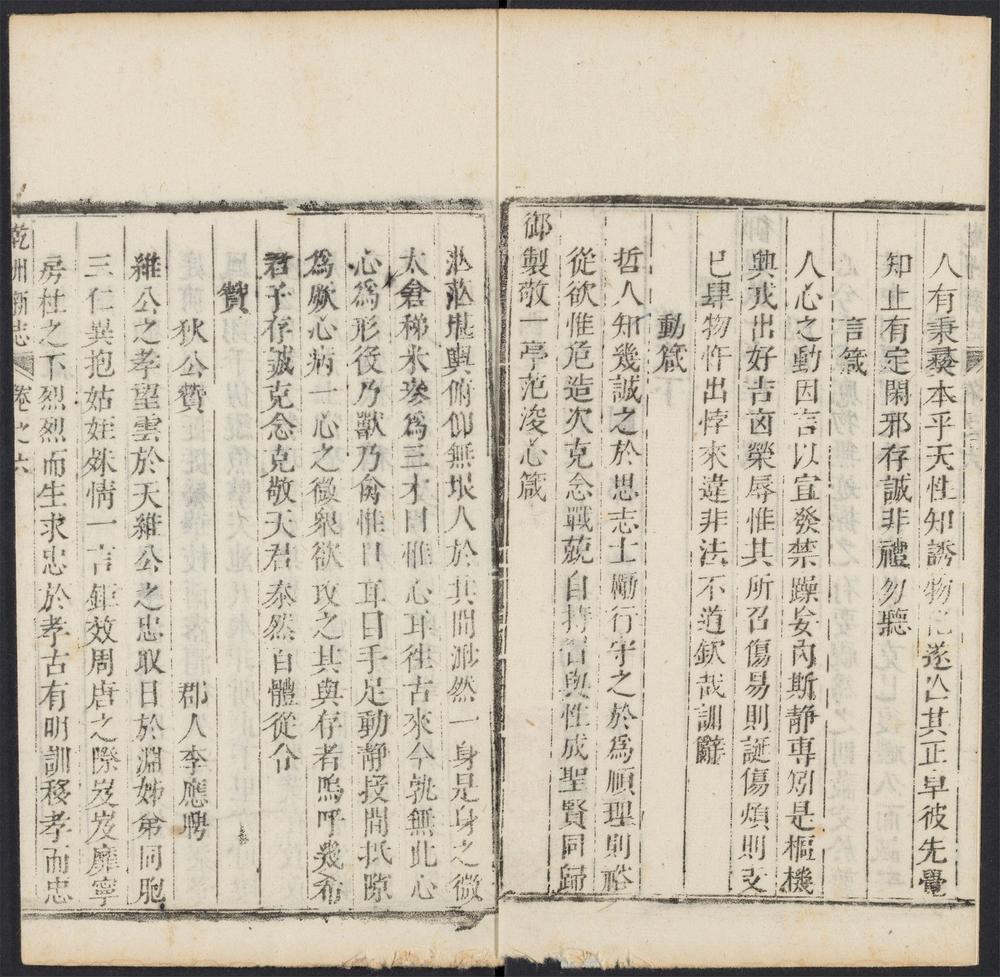 人有秉彝本乎天性知誘物化遂亡其正卓彼先覺
知止有定閑邪存誠非禮勿聽
言箴
人心之動因言以宣發禁躁妄內斯靜專矧是樞機
興戎出好吉凶榮辱惟其所召傷易則誕傷煩則支
已肆物忤出悖來違非法不道欽哉訓辭
動箴
哲人知幾誠之於思志士勵行守之於為順理則裕
從欲惟危造次克念戰兢自持習與性成聖賢同歸
御製敬一亭范浚心箴
茫茫堪輿俯仰無垠人於其間渺然一身是身之微
太倉稊米參為三才曰惟心耳往古來今孰無此心
心為形役乃獸乃禽惟口耳目手足動靜投間抵隙
為厥心病一心之微衆欲攻之其與存者嗚呼幾希
君子存誠克念克敬天君泰然百體從令
贊
狄公贊 郡人李應聘
維公之孝望雲於天維公之忠取日於淵姊弟同胞
三仁異抱姑姪殊情一言鉅效周唐之際岌岌靡寧
房杜之下烈烈而生求忠於孝古有明訓移孝而忠
乾州新志 卷之六